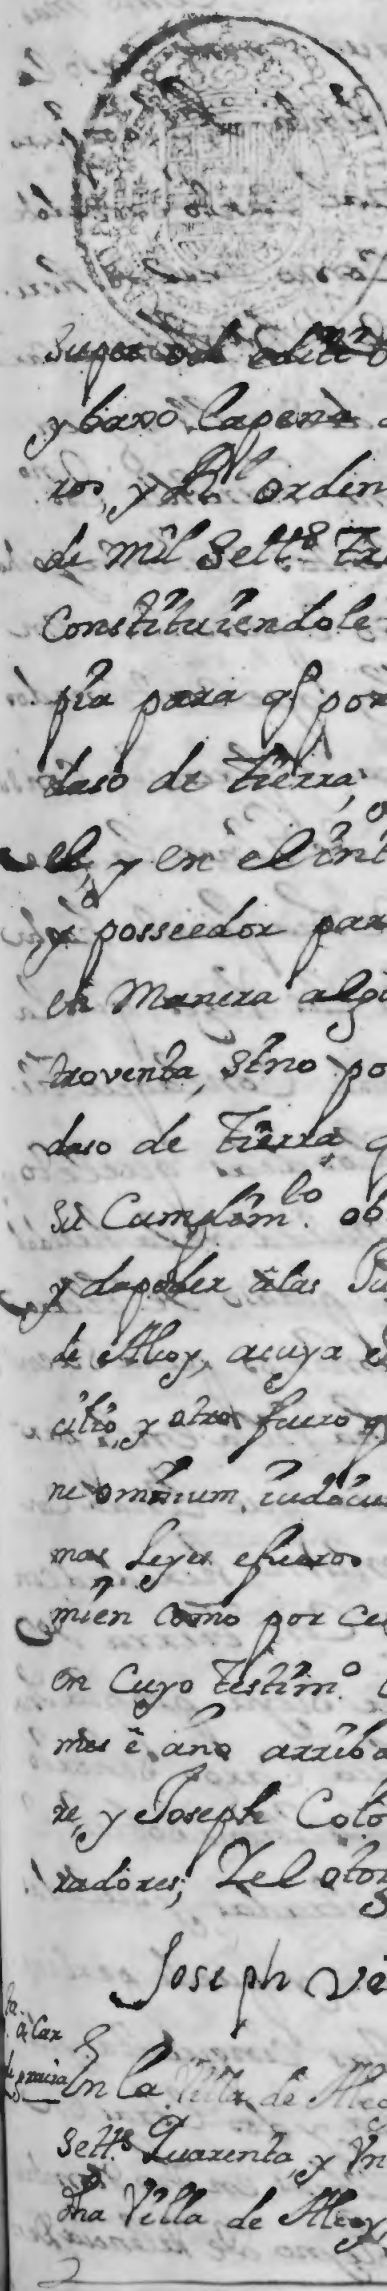 Super
y baxo la pena
ros, y Rl orden
de mil Sett.s Tre
Constituiendole
pia para q.e por
daso de tierra,
el, y en el int
y posseedor par
en Manera algu
troventa, sino po
daso de Tierra q
su Cumplim.to ob
y da poder a las Ju
de Alcoy, a cuya
cilio, y otro fuero q
ne omnium iudicu
mas Leyes e fueros
mien como por
en cuyo testim.o
mes e año arriba
re, y Joseph Colo
radores, Y el otor
Joseph Ve
En la Villa de Alcoy
Sett.s Quarenta, y Un
dha Villa de Alcoy